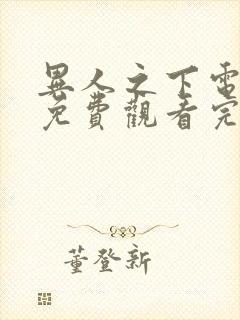 異人之下電
免費觀看完
董登新